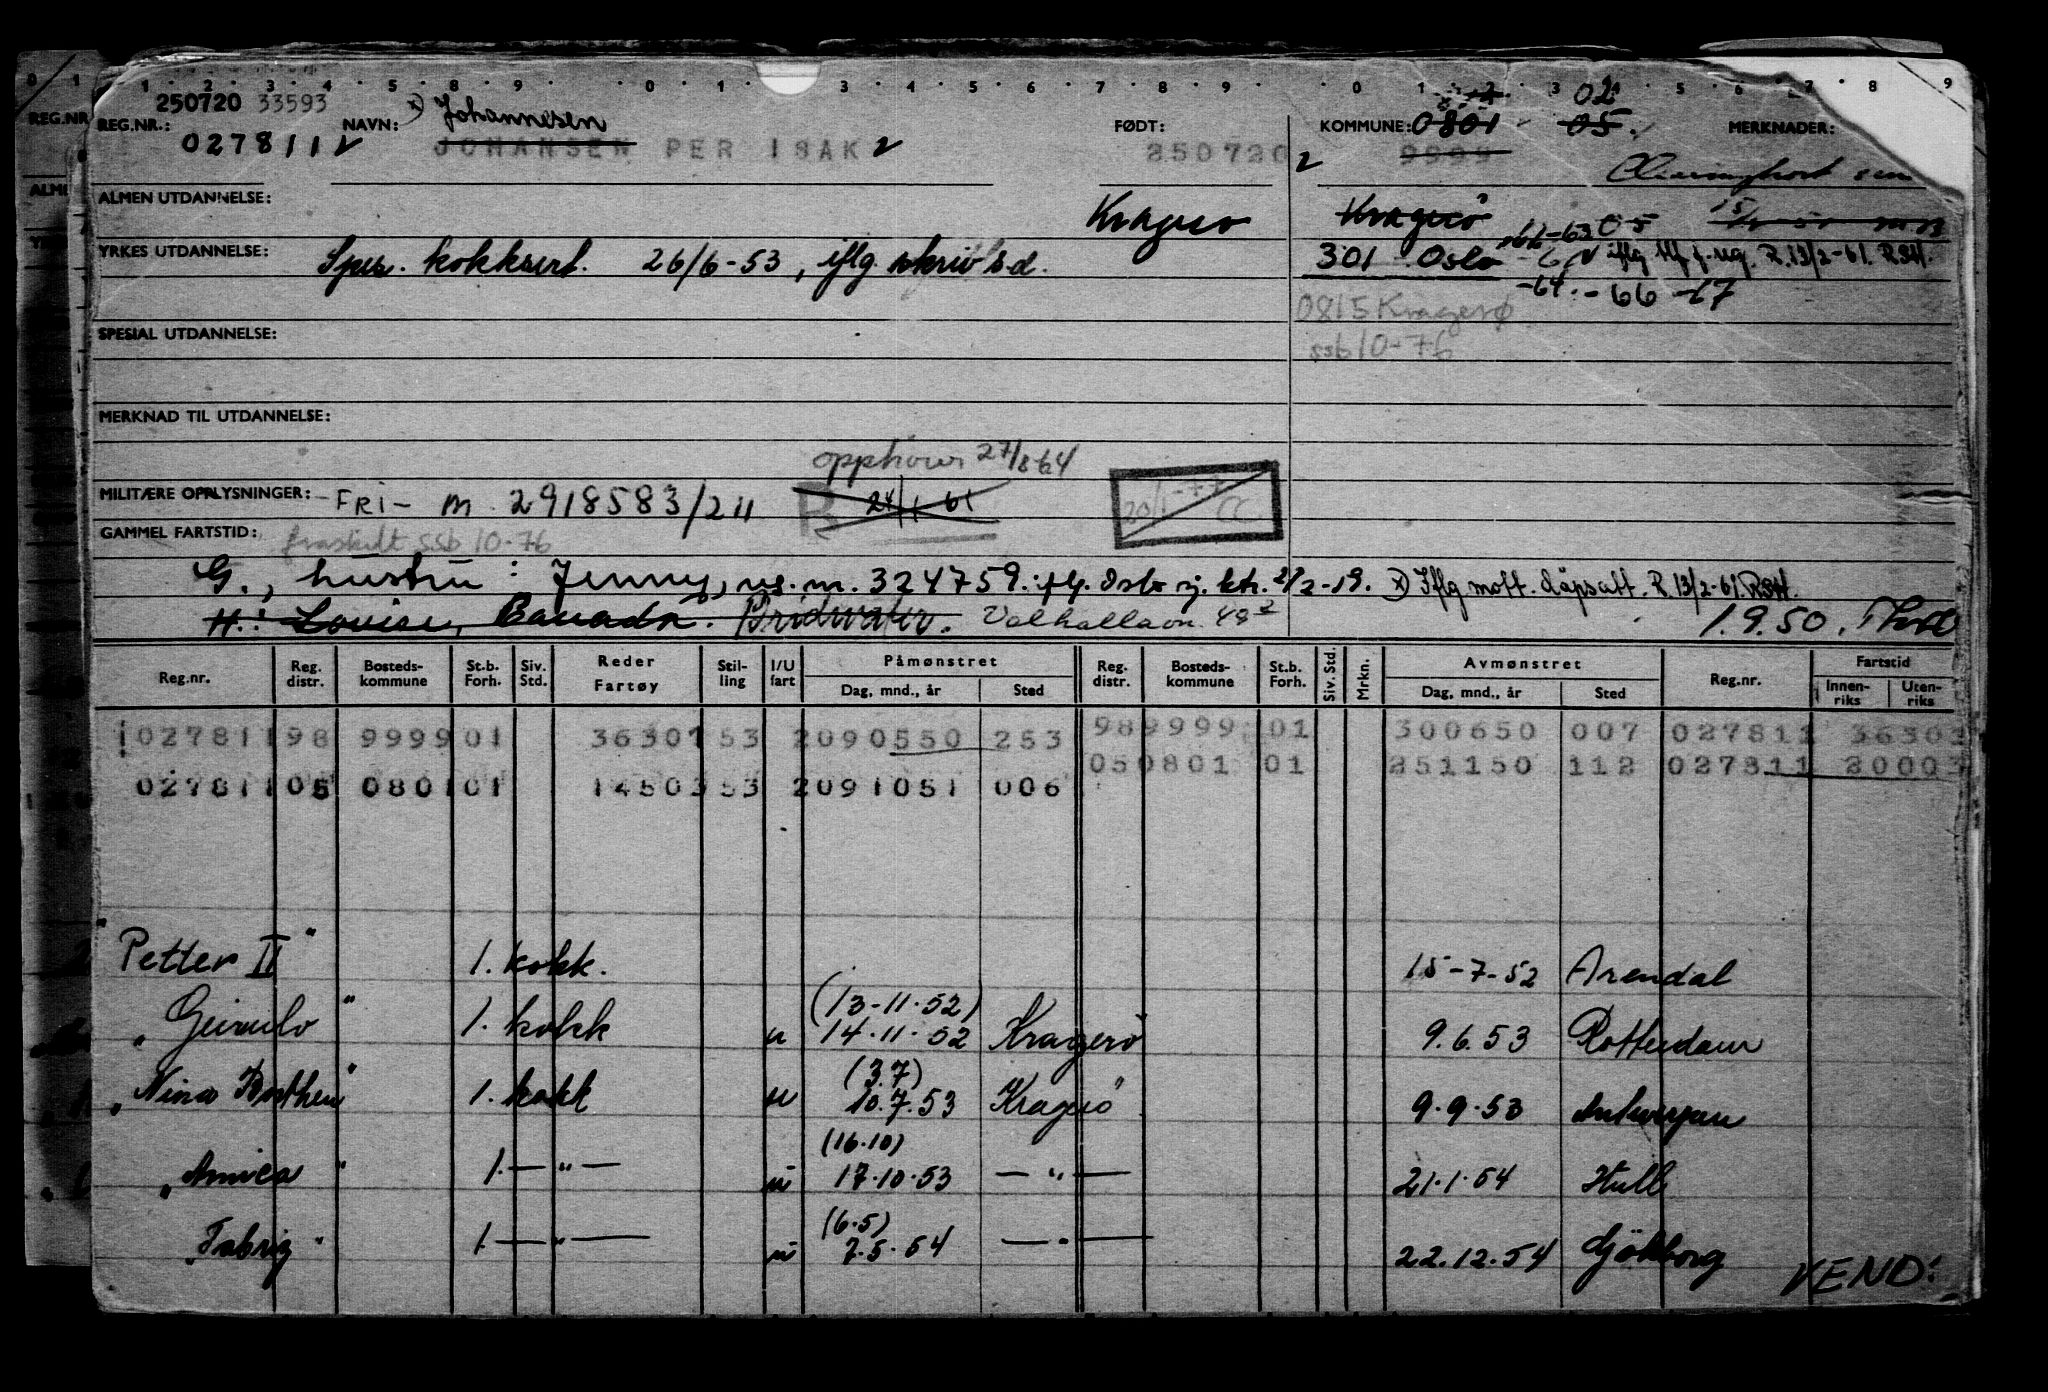 250720 33593
REG.NR.: 027811 NAVN: x) Johannesen FØDT: KOMMUNE: 0801 02 05. MERKNADER:
JOHANSEN PER ISAK 250720 9999
ALMEN UTDANNELSE:
Kragerø Kragerö 05
YRKES UTDANNELSE: Spes. kokksert. 26/6-53, iflg. skriv s.d. 301 Oslo iflg tlf f. reg. R. 13/2-61. RSH.
-64. -66 -67
0815 Kragerø
SPESIAL UTDANNELSE:
ssb 10-76
MERKNAD TIL UTDANNELSE:
opphører 27/8 64
MILITÆRE OPPLYSNINGER: -FRI- m 2918583/211 R 24/1 61 20/1-77 CC
GAMMEL FARTSTID: fraskilt ssb 10-76
G., hustru: Jenny, m. 324759. iflg. Oslo sj. ktr. 2/2-19. x) Iflg mott. dåpsatt. R. 13/2-61. RSH.
H.: Louise, Valhallavn. 48 1.9.50.
Reg.nr. Reg. distr. Bosteds-kommune St.b. Forh. Siv. Std. Reder Fartøy Stil-ling I/U fart Påmønstret Dag, mnd., år Sted Reg. distr. Bosteds-kommune St.b. Forh. Siv. Std. Mrkn. Avmønstret Dag, mnd., år Sted Reg.nr. Fartstid Innen-riks Uten-riks
027811 98 9999 01 36301 53 2 090550 253 98 9999 01 300650 007 027811 36301
05 0801 01 251150 112 027811 20003
027811 05 0801 01 14503 53 2 091051 006
"Petter II" 1. kokk. 15-7-52 Arendal
(13-11-52)
"Geirulv" 1. kokk u 14.11.52 Kragerö 9.6.53 Rotterdam
(3.7)
"Nina Borthen" 1. kokk u 10.7.53 Kragerö 9.9.53 Antwerpen
(16.10)
"Annica" 1. — " — u 17.10.53 — " — 21.1.54 Hull
(6.5)
"Fabrig" 1. — " — u 7.5.54 — " — 22.12.54 Gjøtborg
VEND!